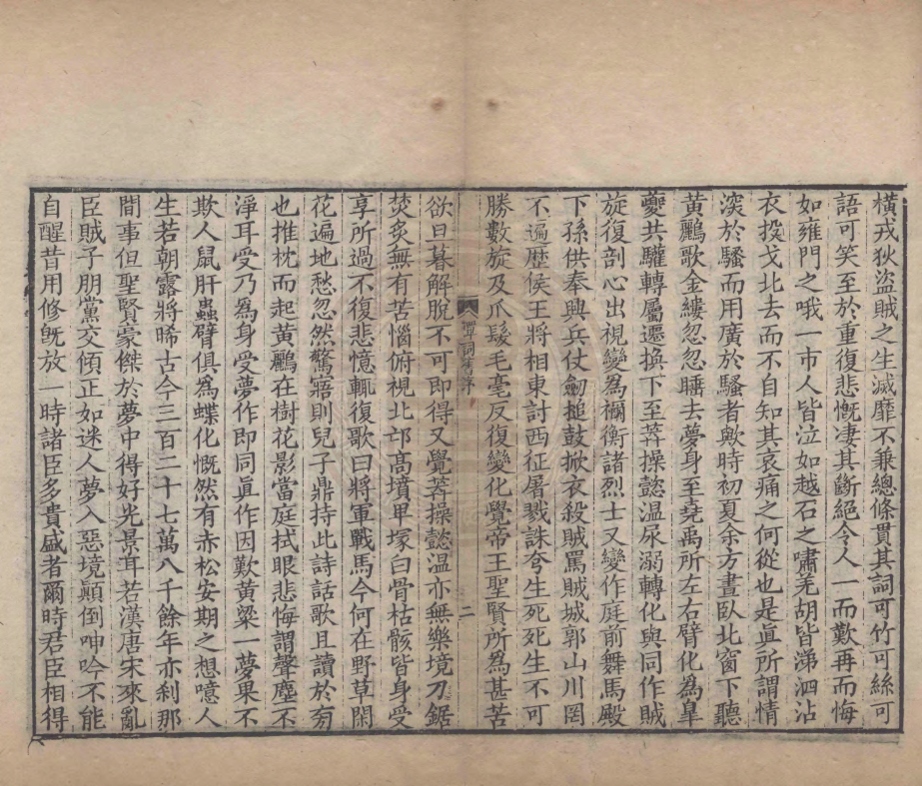 橫戎狄盜賊之生滅靡不兼總條貫其詞可竹可絲可
語可笑至於重復悲慨凄其斷絕令人一而歎再而悔
如雍門之哦一市人皆泣如越石之嘯羌胡皆涕泗沾
衣投戈北去而不自知其哀痛之何從也是眞所謂情
深於騷而用廣於騷者歟時初夏余方晝臥北窗下聽
黃鸝歌金縷忽忽睡去夢身至堯禹所左右臂化為臯
夔共驩轉屬遷換下至莽操懿温尿溺轉化與同作賊
旋復剖心出視變為禰衡諸烈士又變作庭前舞馬殿
下孫供奉興兵仗劒搥鼓掀衣殺賊罵賊城郭山川罔
不遍歴侯王將相東討西征屠戮誅夸生死死生不可
勝數旋及爪髮毛毫反復變化覺帝王聖賢所為甚苦
欲旦暮解脫不可即得又覺莽操懿温亦無樂境刀鋸
焚炙無有苦惱俯視北邙高墳甲塚白骨枯骸皆身受
享所過不復悲憶輒復歌曰將軍戰馬今何在野草閑
花遍地愁忽然驚寤則兒子鼎持此詩話歌且讀於旁
也推枕而起黃鸝在樹花影當庭拭眼悲悔謂聲塵不
淨耳受乃為身受夢作即同眞作因歎黃粱一夢果不
欺人鼠肝蟲臂俱為蝶化慨然有赤松安期之想噫人
生若朝露將晞古今三百二十七萬八千餘年亦刹那
間事但聖賢豪傑於夢中得好光景耳若漢唐宋來亂
臣賊子朋黨交傾正如迷人夢入惡境顚倒呻吟不能
自醒昔用修旣放一時諸臣多貴盛者爾時君臣相得
二